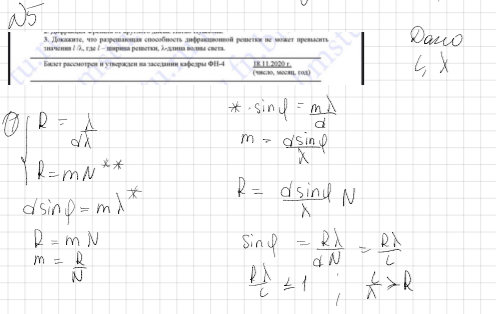 N5
3. Докажите, что разрешающая способность дифракционной решетки не может превысить
значения l /λ, где l – ширина решетки, λ-длина волны света.
Билет рассмотрен и утвержден на заседании кафедры ФН-4 18.11.2020 г.
(число, месяц, год)
Дано
L, λ
R = λ/dλ
R = mN **
d sinφ = mλ *
R = mN
m = R/N
* sinφ = mλ/d
m = d sinφ/λ
R = d sinφ/λ N
sinφ = Rλ/dN = Rλ/L
Rλ/L ≤ 1 ; L/λ > R